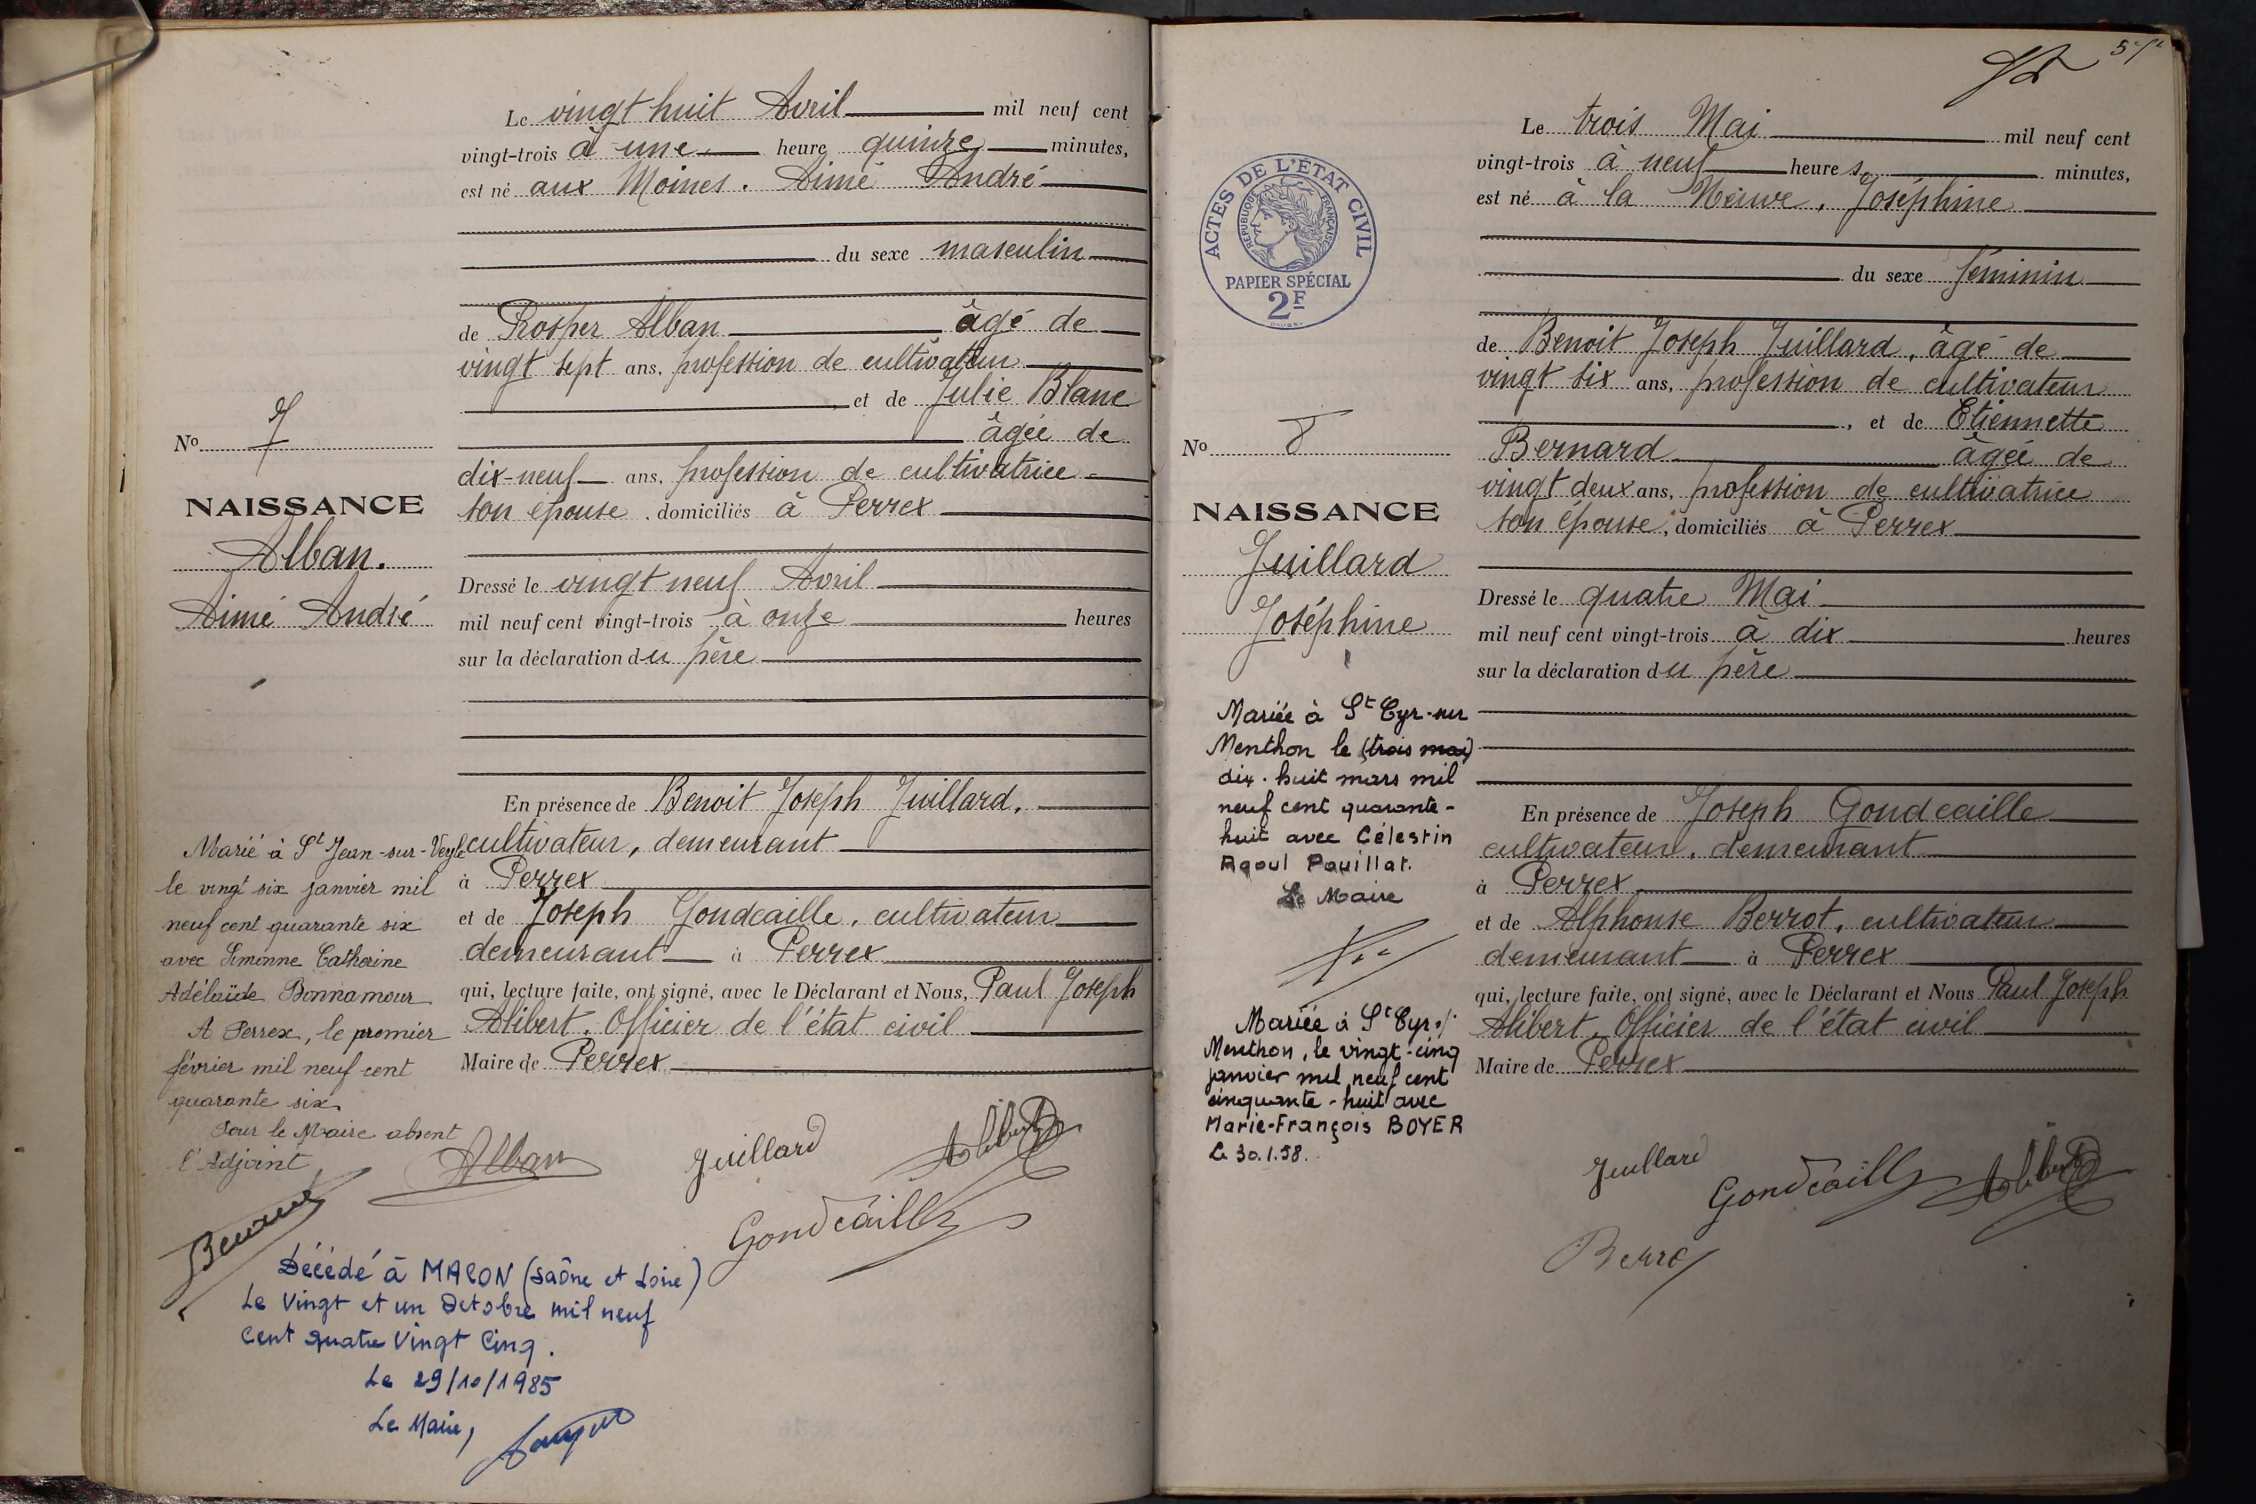 Le vingt huit Avril mil neuf cent
vingt-trois à une heure quinze minutes,
est né aux Moines. Aimé André
du sexe masculin
de Prosper Alban âgé de
vingt sept ans, profession de cultivateur
et de Julie Blanc
âgée de
dix-neuf ans, profession de cultivatrice
son épouse, domiciliés à Perrex
Dressé le vingt neuf Avril
mil neuf cent vingt-trois à onze heures
sur la déclaration du père
En présence de Benoit Joseph Juillard,
cultivateur, demeurant
à Perrex
et de Joseph Gondcaille, cultivateur
demeurant à Perrex
qui, lecture faite, ont signé, avec le Déclarant et Nous, Paul Joseph
Alibert, Officier de l'état civil
Maire de Perrex
No 7
NAISSANCE
Alban.
Aimé André
Marié à St Jean-sur-Veyle
le vingt six janvier mil
neuf cent quarante six
avec Simonne Catherine
Adélaïde Bonnamour
A Perrex, le premier
février mil neuf cent
quarante six
Pour le Maire absent
l'Adjoint
Alban
Juillard
Alibert
Gondcaille
Décédé à MACON (Saône et Loire)
Le Vingt et un Octobre mil neuf
Cent quatre Vingt Cinq.
Le 29/10/1985
Le Maire,
ACTES DE L'ÉTAT CIVIL
RÉPUBLIQUE FRANÇAISE
PAPIER SPÉCIAL
2F
No 8
NAISSANCE
Juillard
Joséphine
Mariée à St Cyr-sur
Menthon le (trois mai)
dix-huit mars mil
neuf cent quarante-
huit avec Célestin
Raoul Pauillat.
Le Maire
Mariée à St Cyr s/
Menthon, le vingt-cinq
janvier mil neuf cent
cinquante-huit avec
Marie-François BOYER
Le 30.1.58.
Le trois Mai mil neuf cent
vingt-trois à neuf heures minutes,
est né à la Neuve, Joséphine
du sexe féminin
de Benoit Joseph Juillard, âgé de
vingt six ans, profession de cultivateur
, et de Etiennette
Bernard âgée de
vingt deux ans, profession de cultivatrice
son épouse, domiciliés à Perrex
Dressé le quatre Mai
mil neuf cent vingt-trois à dix heures
sur la déclaration du père
En présence de Joseph Gondcaille
cultivateur, demeurant
à Perrex
et de Alphonse Berrot, cultivateur
demeurant à Perrex
qui, lecture faite, ont signé, avec le Déclarant et Nous Paul Joseph
Alibert, Officier de l'état civil
Maire de Perrex
Juillard
Gondcaille
Alibert
Berrot